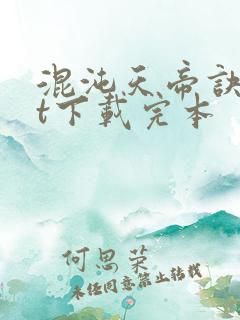 混沌天帝訣
t下載完本
何思荣
未经同意禁止转载